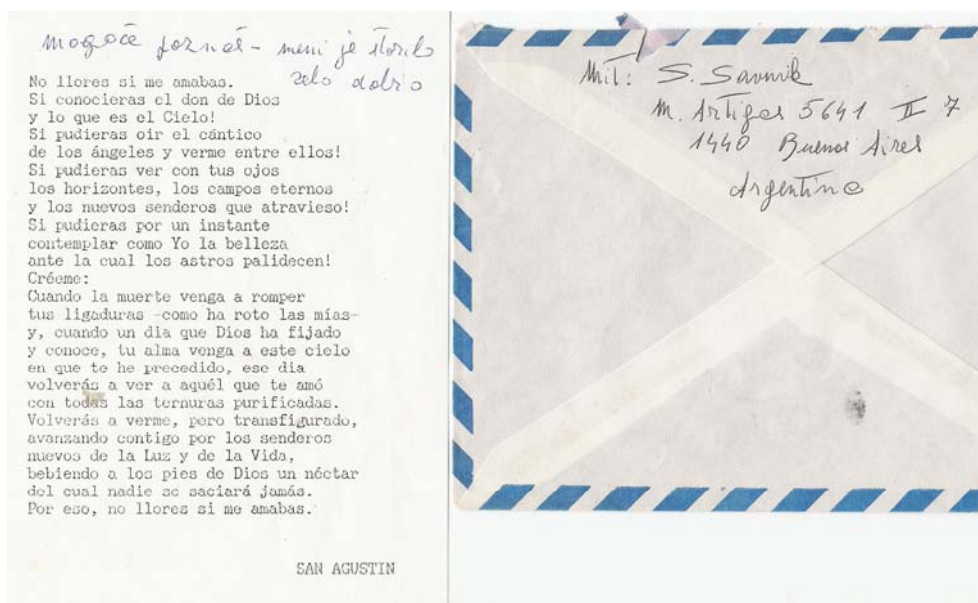 mogoče poznaš - meni je storilo
zelo dobro
No llores si me amabas.
Si conocieras el don de Dios
y lo que es el Cielo!
Si pudieras oir el cántico
de los ángeles y verme entre ellos!
Si pudieras ver con tus ojos
los horizontes, los campos eternos
y los nuevos senderos que atravieso!
Si pudieras por un instante
contemplar como Yo la belleza
ante la cual los astros palidecen!
Créeme:
Cuando la muerte venga a romper
tus ligaduras -como ha roto las mías-
y, cuando un dia que Dios ha fijado
y conoce, tu alma venga a este cielo
en que te he precedido, ese dia
volverás a ver a aquél que te amó
con todas las ternuras purificadas.
Volverás a verme, pero transfigurado,
avanzando contigo por los senderos
nuevos de la Luz y de la Vida,
bebiendo a los pies de Dios un néctar
del cual nadie se saciará jamás.
Por eso, no llores si me amabas.
SAN AGUSTIN
S. Savnik
M. Artigas 5641 II 7
1440 Buenos Aires
Argentina